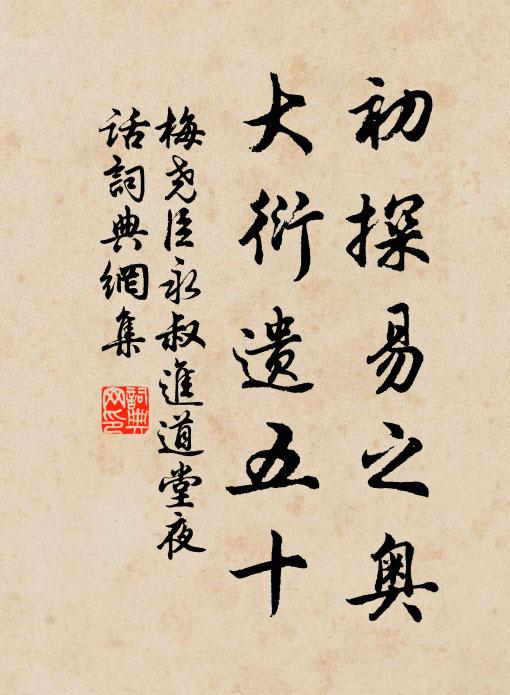 初探易之奥
大衍遗五十
梅尧臣永叔進道堂夜
话詞典網集
詞典網印